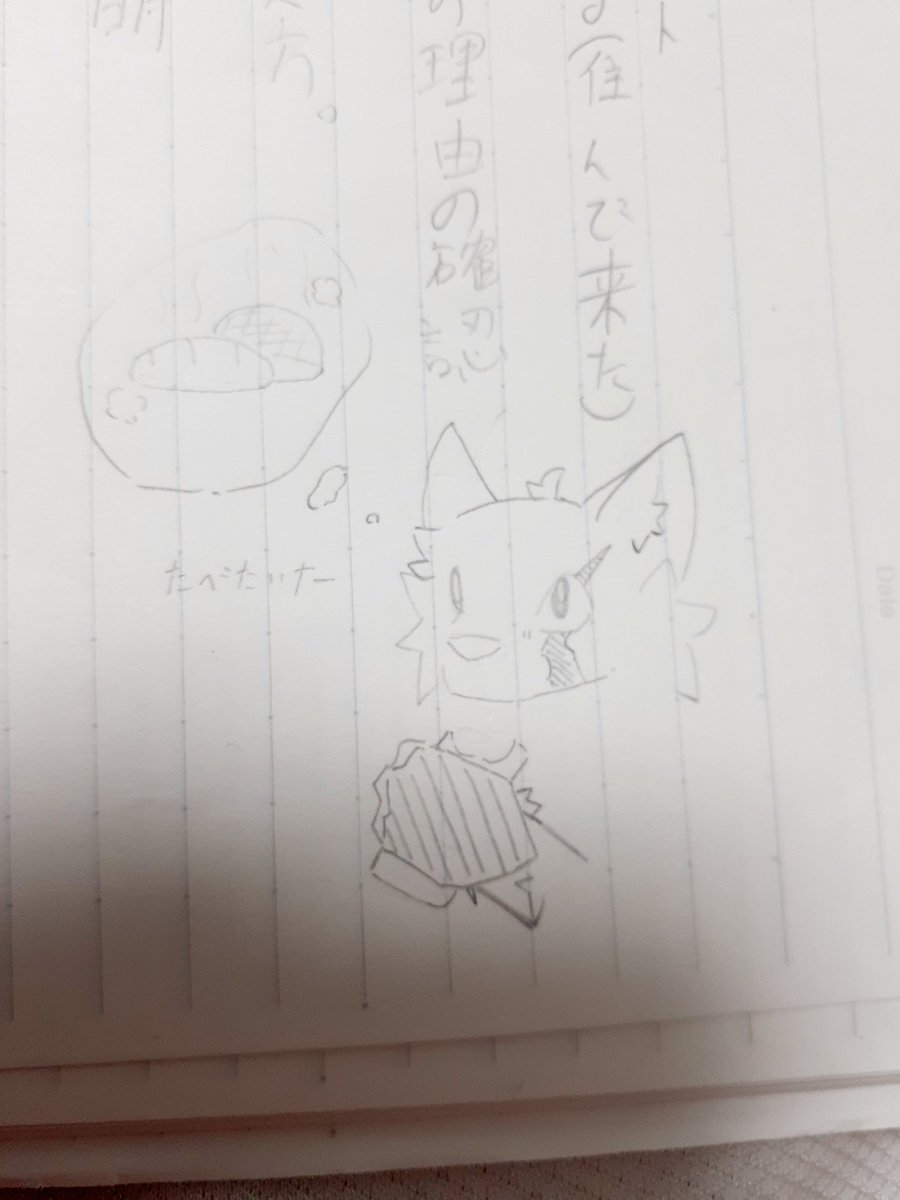 ト
る(住んで来た)
の理由の確認
方。
明
たべたいなー
Date